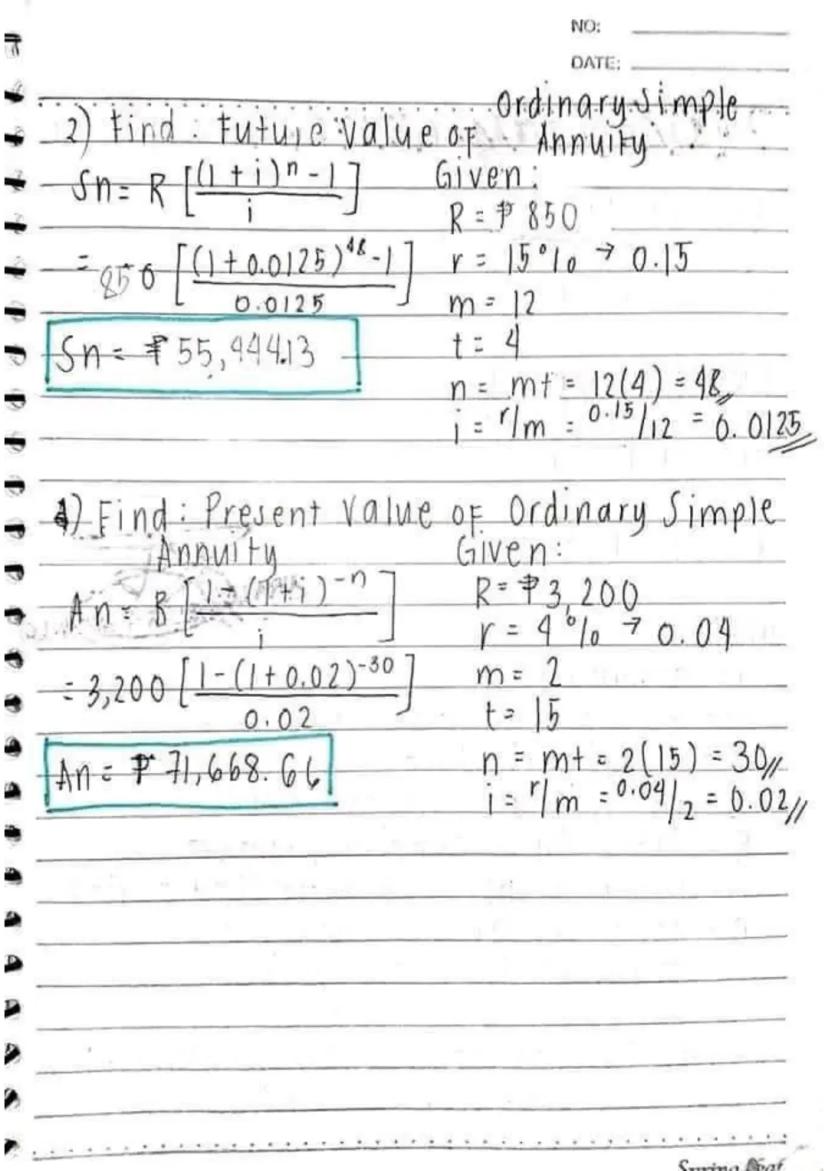 NO:
DATE:
2) Find : Future Value of Ordinary Simple Annuity
Sn = R [(1 + i)^n - 1 / i]
Given:
R = ₱ 850
= 850 [(1 + 0.0125)^48 - 1 / 0.0125]
r = 15% → 0.15
m = 12
Sn = ₱ 55,444.13
t = 4
n = mt = 12(4) = 48
i = r/m = 0.15/12 = 0.0125
4) Find : Present Value of Ordinary Simple
Annuity
Given:
An = R [1 - (1 + i)^-n / i]
R = ₱3,200
r = 4% → 0.04
= 3,200 [1 - (1 + 0.02)^-30 / 0.02]
m = 2
t = 15
An = ₱ 71,668.66
n = mt = 2(15) = 30
i = r/m = 0.04/2 = 0.02
Spring Leaf